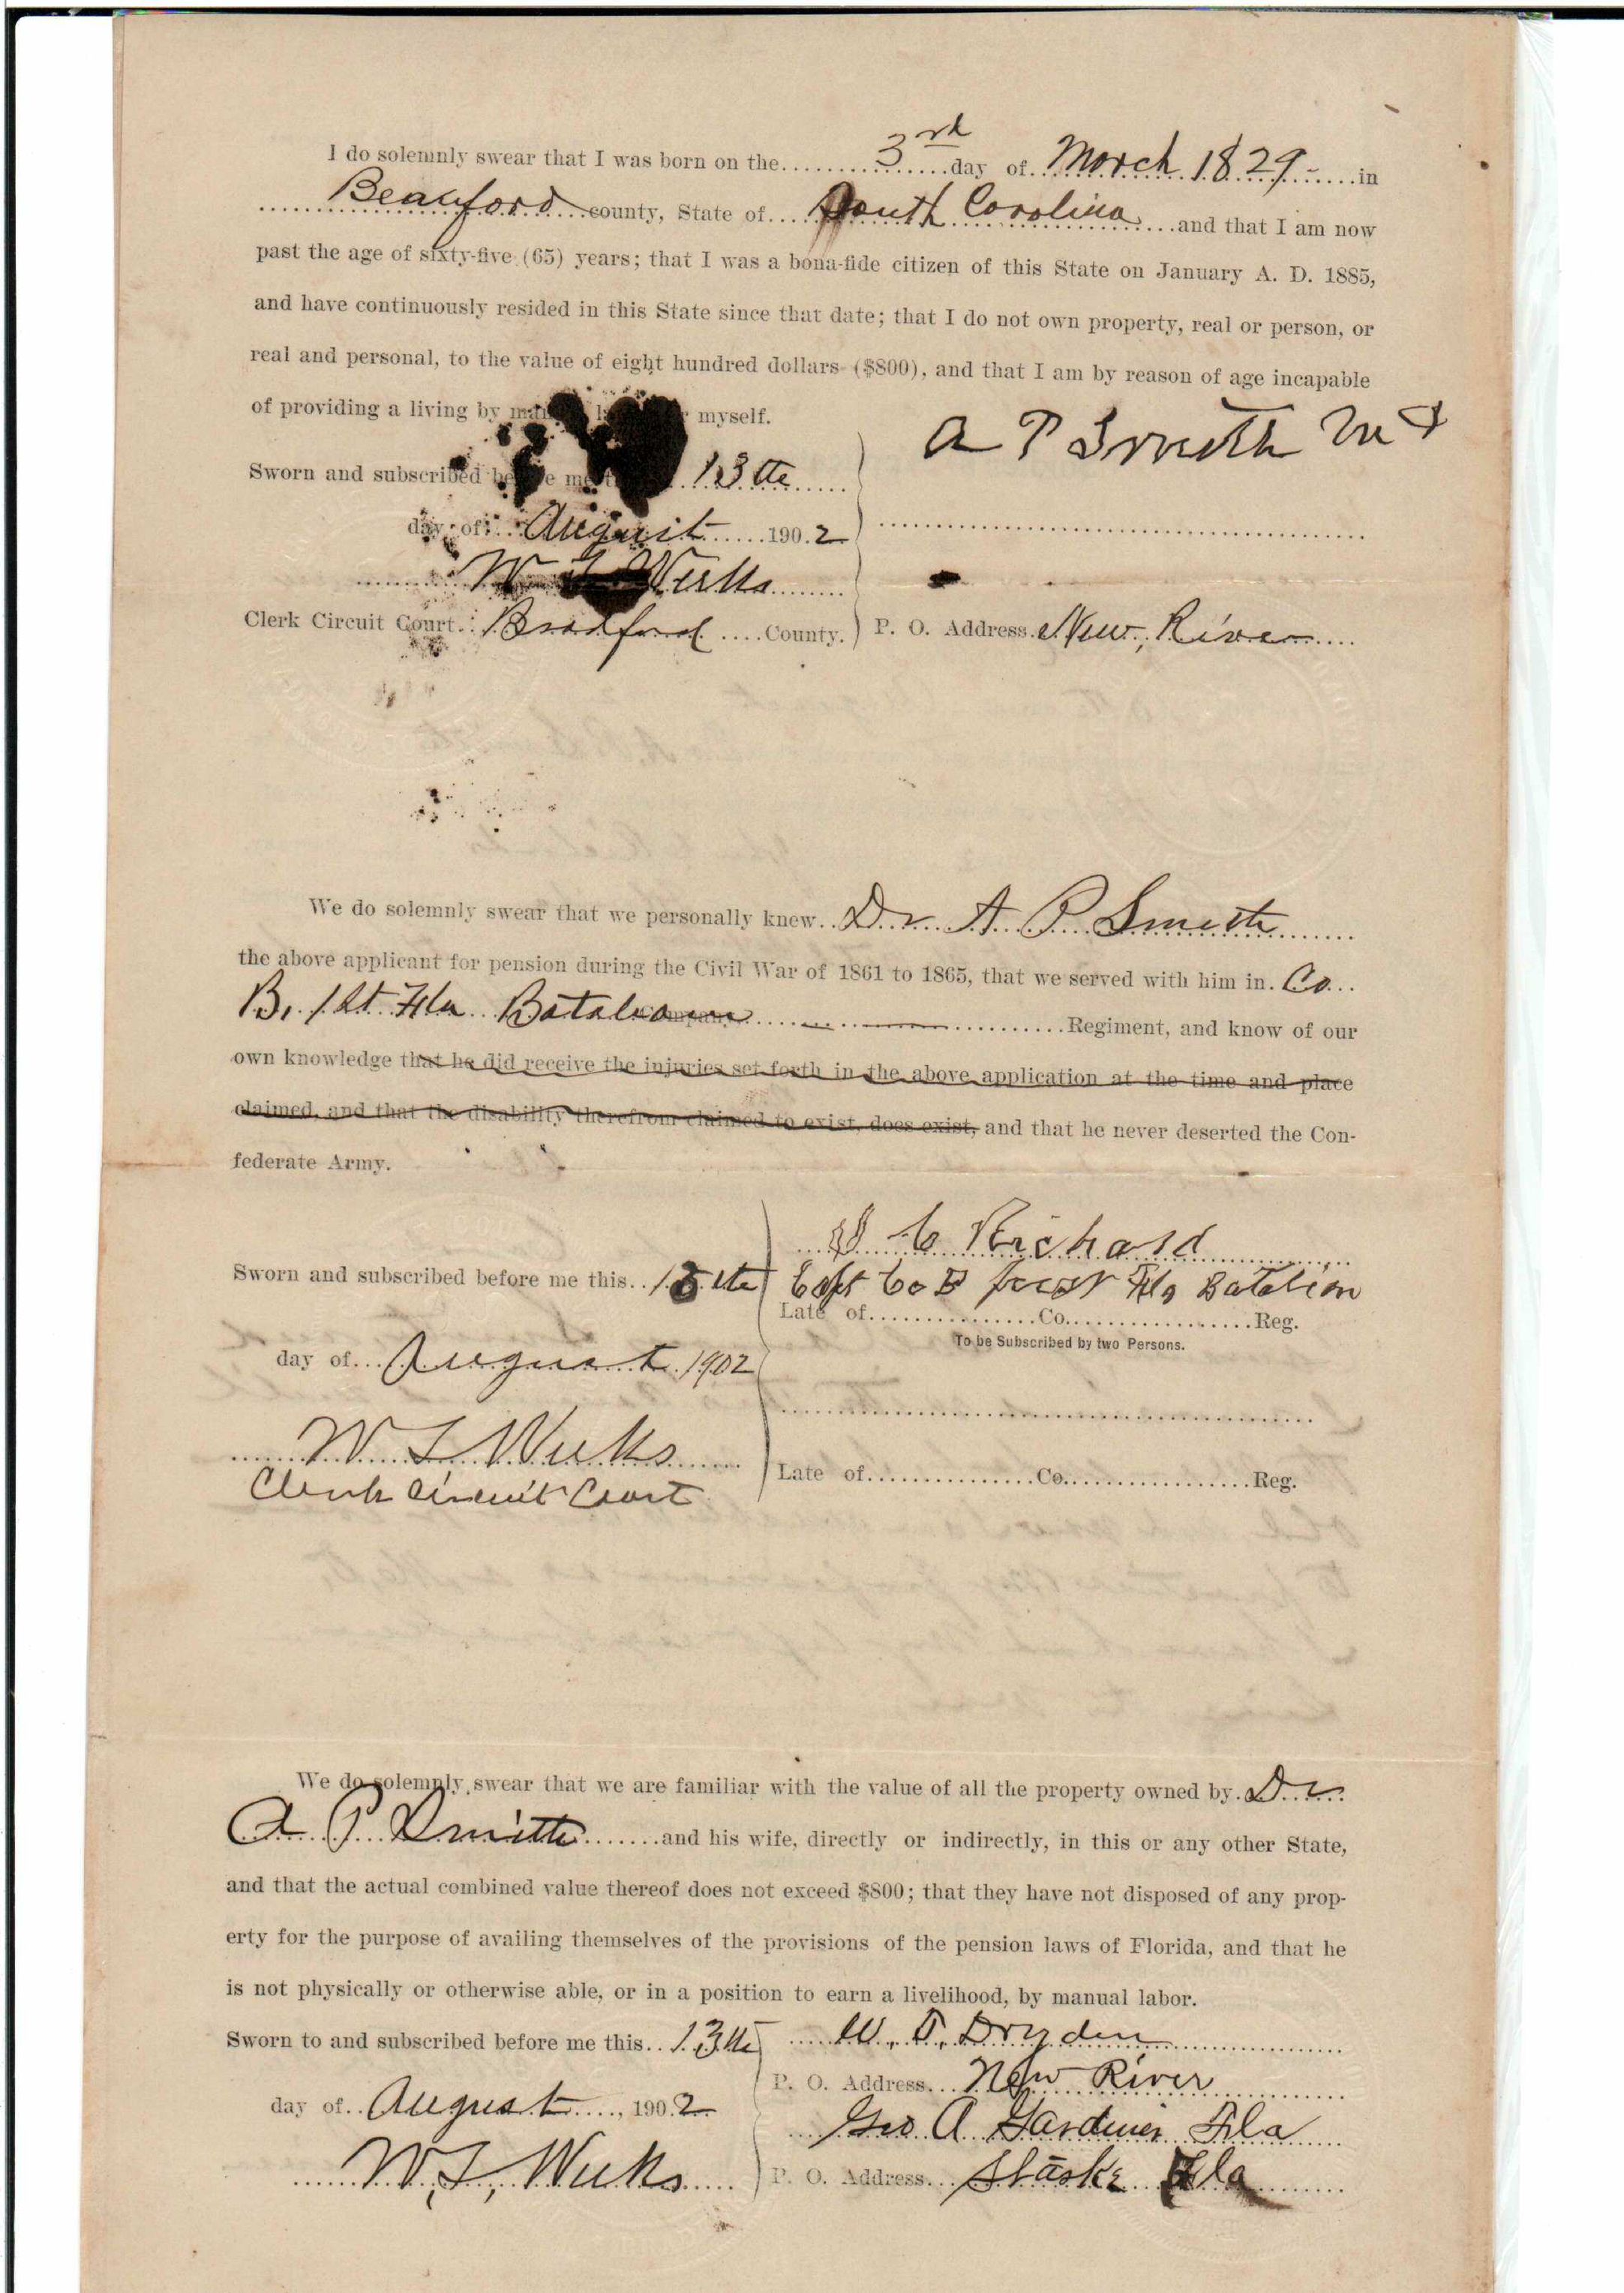 I do solemnly swear that I was born on the 3rd day of March 1829 in
Beauford county, State of South Carolina and that I am now
past the age of sixty-five (65) years; that I was a bona-fide citizen of this State on January A. D. 1885,
and have continuously resided in this State since that date; that I do not own property, real or person, or
real and personal, to the value of eight hundred dollars ($800), and that I am by reason of age incapable
of providing a living by myself.
A P Smith
Sworn and subscribed before me 13th
day of August 1902
W Weeks
Clerk Circuit Court Bradford County. P. O. Address New River
We do solemnly swear that we personally knew Dr. A P Smith
the above applicant for pension during the Civil War of 1861 to 1865, that we served with him in Co
B, 1st Fla Batalion Regiment, and know of our
own knowledge that he did receive the injuries set forth in the above application at the time and place
claimed, and that the disability therefrom claimed to exist, does exist, and that he never deserted the Con-
federate Army.
C Richard
Sworn and subscribed before me this
Capt Co B first Fla Batalion
Late of Co. Reg.
To be Subscribed by two Persons.
day of August 1902
W L Weeks
Clerk Circuit Court
Late of Co. Reg.
We do solemnly swear that we are familiar with the value of all the property owned by Dr
A P Smith and his wife, directly or indirectly, in this or any other State,
and that the actual combined value thereof does not exceed $800; that they have not disposed of any prop-
erty for the purpose of availing themselves of the provisions of the pension laws of Florida, and that he
is not physically or otherwise able, or in a position to earn a livelihood, by manual labor.
Sworn to and subscribed before me this 13th
W. T. Dryden
P. O. Address New River
day of August, 1902
Geo A Gardiner Fla
W. L. Weeks
P. O. Address Starke Fla